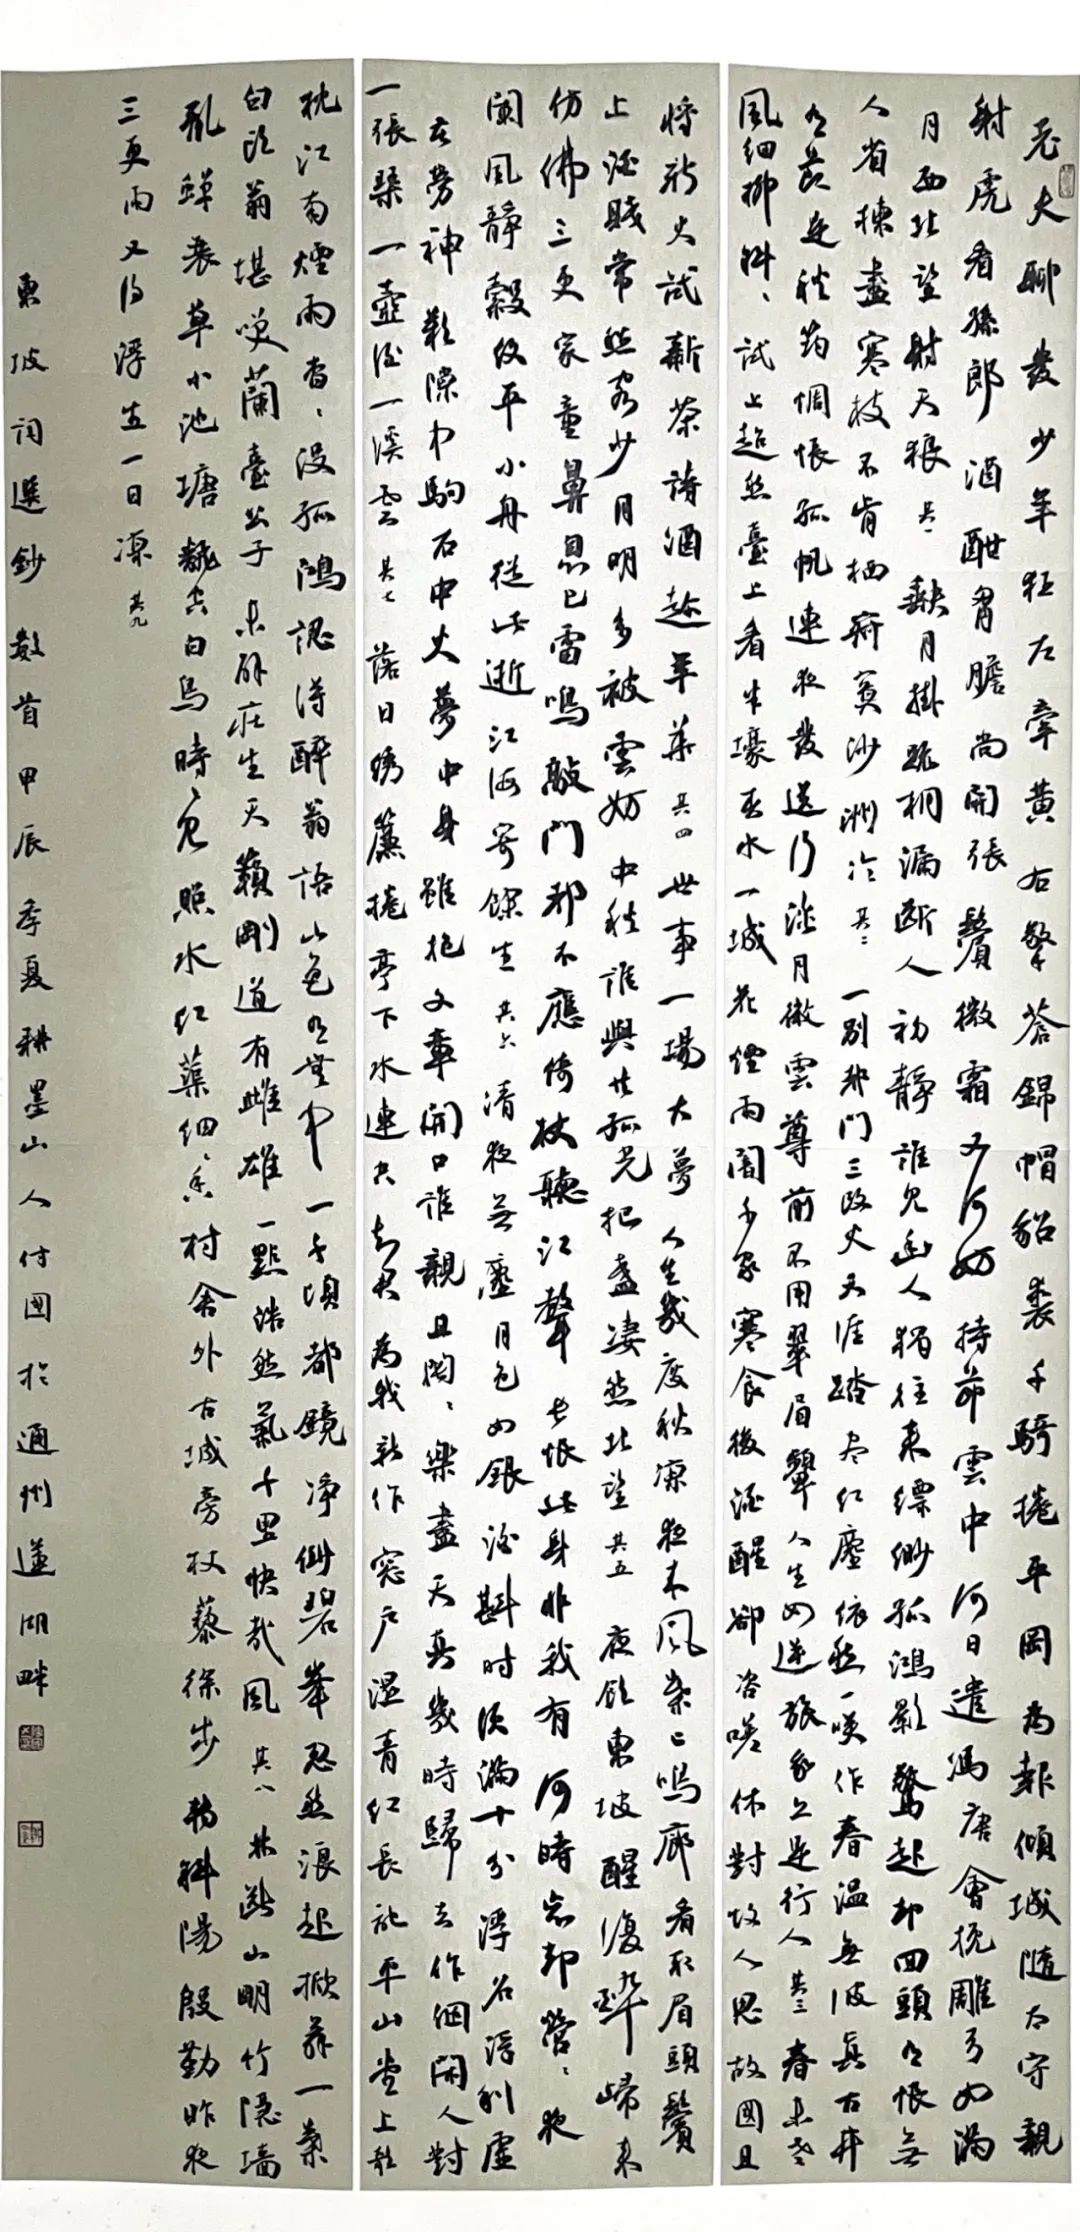 老夫聊發少年狂左牽黃右擎蒼錦帽貂裘千騎捲平岡為報傾城隨太守親
射虎看孫郎酒酣胷膽尚開張鬢微霜又何妨持節雲中何日遣馮唐會挽雕弓如滿
月西北望射天狼其一缺月掛疏桐漏斷人初靜誰見幽人獨往來縹緲孤鴻影驚起却回頭有恨無
人省揀盡寒枝不肯栖寂寞沙洲冷其二一別都門三改火天涯踏尽紅塵依然一笑作春溫無波真古井
有節是秋筠惆悵孤帆連夜發送行淡月微雲尊前不用翠眉顰人生如逆旅我亦是行人其三春未老
風細柳斜、試上超然臺上看半壕春水一城花煙雨闇千家寒食後酒醒卻咨嗟休對故人思故國且
將新火試新茶詩酒趁年華其四世事一場大夢人生幾度秋凉夜來風葉已鳴廊看取眉頭鬢
上酒賤常愁客少月明多被雲妨中秋誰與共孤光把盞淒然北望其五夜飲東坡醒復醉歸來
仿佛三更家童鼻息已雷鳴敲門都不應倚杖聽江聲長恨此身非我有何時忘却營、夜
闌風靜縠紋平小舟從此逝江海寄餘生其六清夜無塵月色如銀酒斟時須滿十分浮名浮利虛
苦勞神歎隙中駒石中火夢中身雖抱文章開口誰親且陶、樂盡天真幾時歸去作個閑人對
一張琴一壺酒一溪雲其七落日綉簾捲亭下水連空知君為我新作窓戶濕青紅長記平山堂上欹
枕江南煙雨杳、沒孤鴻認得醉翁語山色有無中一千頃都鏡淨倒碧峯忽然浪起掀舞一葉
白頭翁堪笑蘭臺公子未解莊生天籟剛道有雌雄一點浩然氣千里快哉風其八林斷山明竹隱墻
亂蟬衰草小池塘翻空白鳥時、見照水紅蕖細、香村舍外古城旁杖藜徐步轉斜陽殷勤昨夜
三更雨又得浮生一日凉其九
東坡詞選鈔數首甲辰季夏耕墨山人付國於通州蓮湖畔